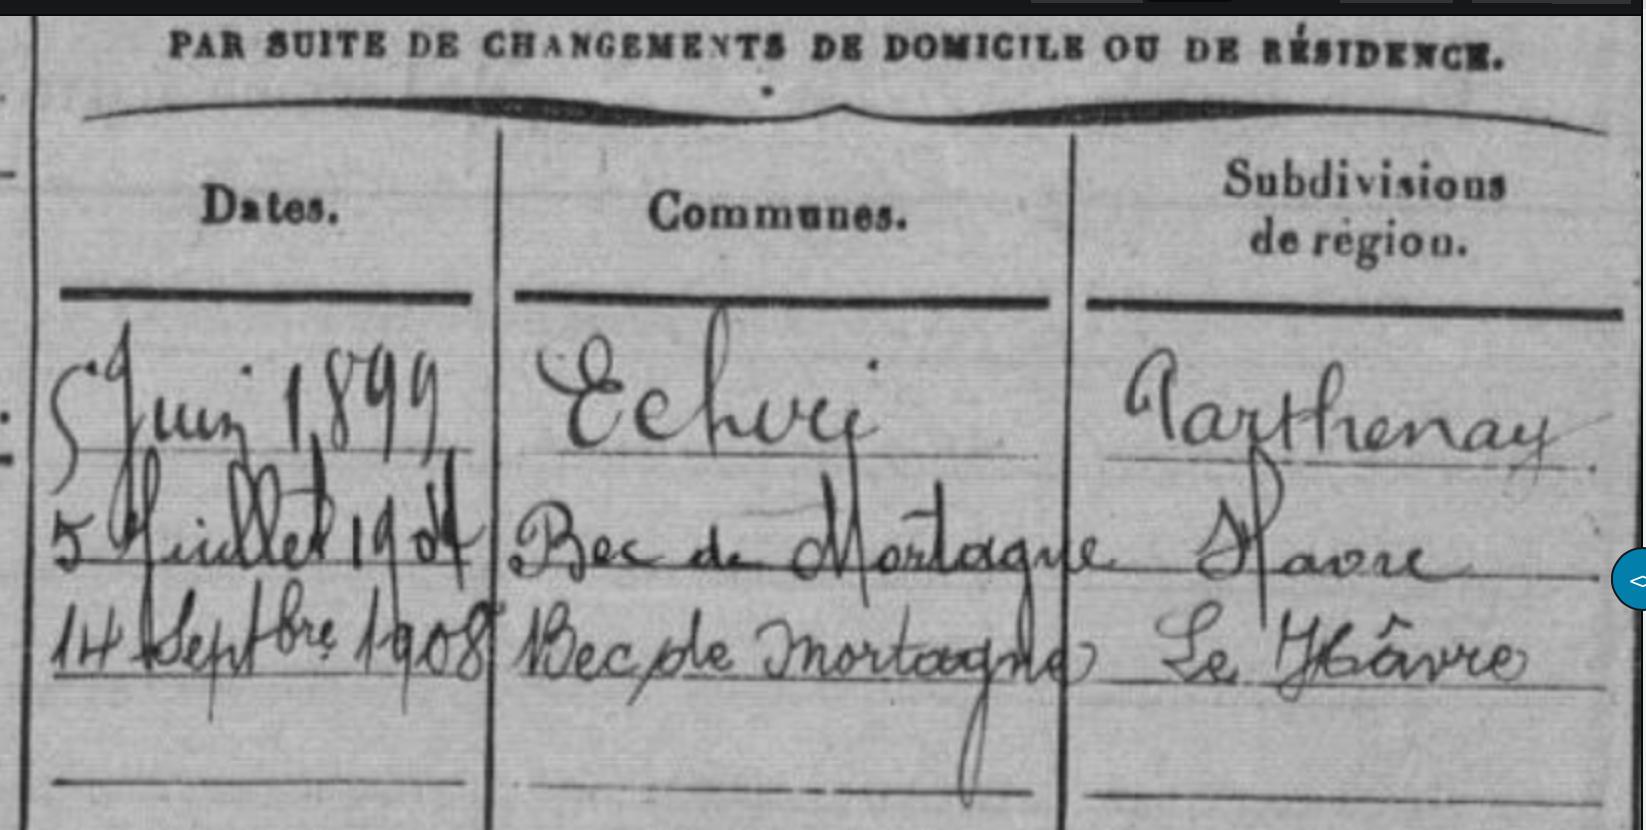 PAR SUITE DE CHANGEMENTS DE DOMICILE OU DE RÉSIDENCE.
Dates. Communes. Subdivisions de région.
5 Juin 1899 Echiré Parthenay
5 Juillet 1904 Bec de Mortagne Havre
14 Septbre 1908 Bec de Mortagne Le Hâvre